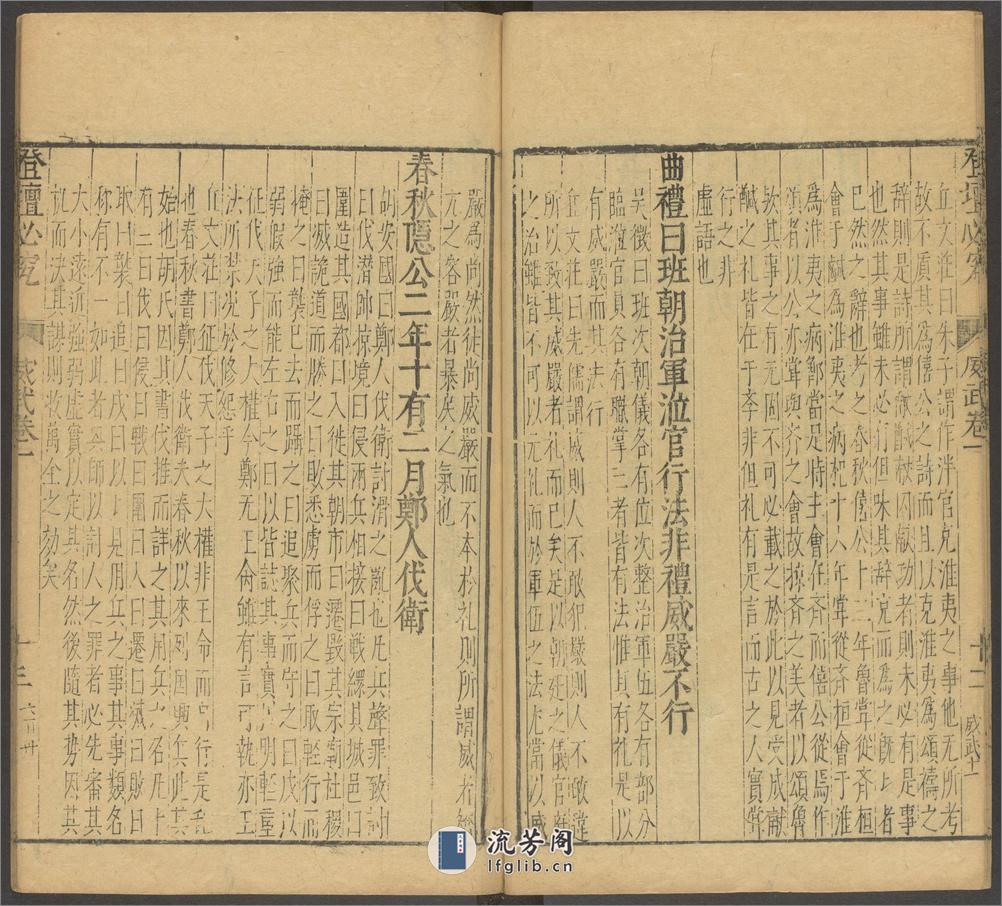 登壇必究 威武卷一 十二 威武十一
丘文莊曰朱子謂作泮宮克淮夷之事他无所考
故不質其為僖公之詩而且以克淮夷為頌禱之
辭則是詩所謂獻馘獻囚獻功者則未必有是事
也然其事雖未必有但味其辭克而為之既者
已然之辭也考之春秋僖公十三年魯嘗從齊桓
會于鹹為淮夷之病杞十六年嘗從齊桓會于淮
為淮夷之病鄫當是時主會在齊而僖公從焉作
頌者以其嘗與齊之會故掠齊之美者以頌魯
欤其事之有无固不可必載之於此以見受成獻
馘之礼皆在于斈非但礼有是言而古之人實嘗
行之非
虛語也
曲禮曰班朝治軍涖官行法非禮威嚴不行
吳徵曰班次朝儀各有位次整治軍伍各有部分
臨涖官員各有職掌三者皆有法惟其有礼是以
有威嚴而其法行
丘文莊曰先儒謂威則人不敢犯嚴則人不敢違
所以致其威嚴者礼而已矣是以朝廷之儀官府
之治雖皆不可以无礼而於軍伍之法尤當以威
嚴為尚然徒尚威嚴而不本於礼則所謂威者
亢之容嚴者暴戾之氣也
春秋隱公二年十有二月鄭人伐衛
胡安國曰鄭人伐衛討滑之亂也凡兵聲罪致討
曰伐潛師掠境曰侵兩兵相接曰戰繯其城邑曰
圍造其國都曰入徙其朝市曰遷毀其宗廟社稷
曰滅詭道而勝之曰敗悉虜而俘之曰取輕行而
掩之曰襲已去而躡之曰追聚兵而守之曰戍以
弱假強而能左右之曰以皆誌其事實以明輕重
征伐天子之大權今鄭无王命雖有言可執亦王
法所禁况於修怨乎
丘文莊曰征伐天子之大權非王命而自行是乱
也春秋書鄭人伐衛夫春秋以來列國興兵此其
始也故胡氏因其書伐推而詳之其用兵之名凡十
有二曰伐曰侵曰戰曰圍曰入曰遷曰滅曰敗曰
取曰襲曰追曰戍曰以以見用兵之事其事類名
称有不一如此者兵以討人之罪者必先審其
大小遠近強弱虛實以定其名然後隨其势因其
机而決其謀則收萬全之効矣
登壇必究 威武卷一 十三
流芳阁
lfglib.cn